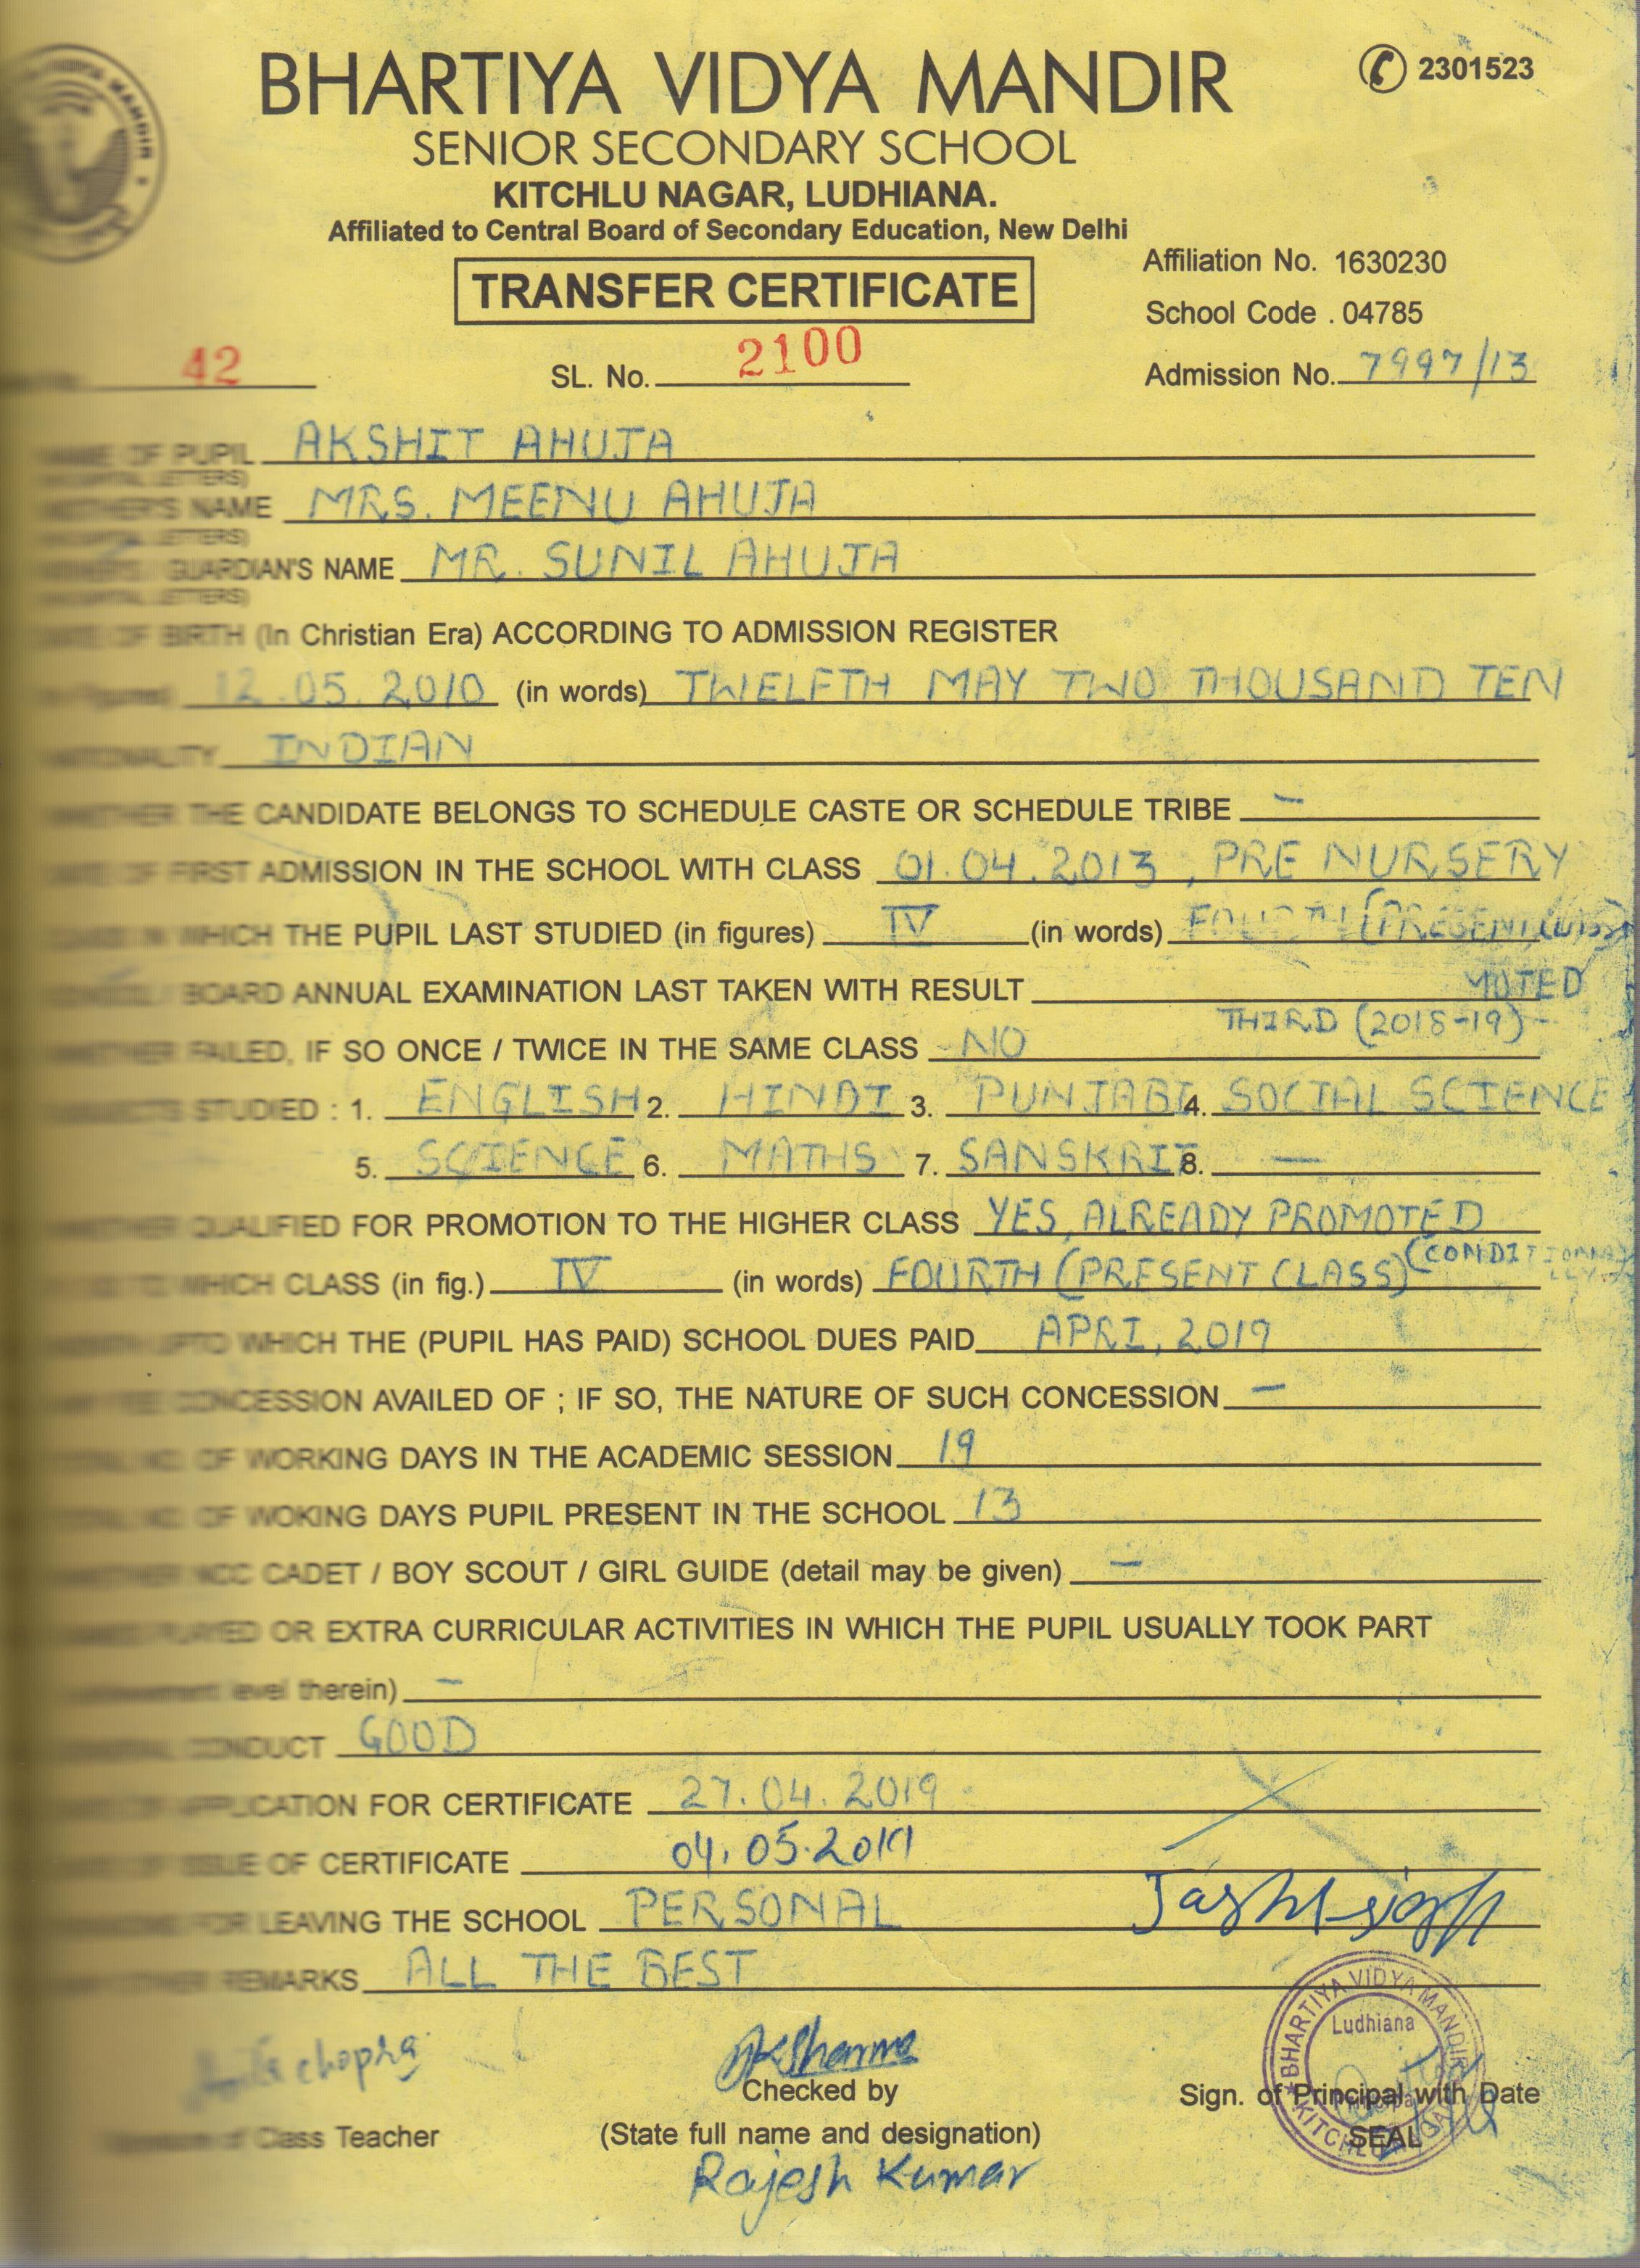 BHARTIYA VIDYA MANDIR
2301523
SENIOR SECONDARY SCHOOL
KITCHLU NAGAR, LUDHIANA.
Affiliated to Central Board of Secondary Education, New Delhi
Affiliation No. 1630230
TRANSFER CERTIFICATE
School Code . 04785
42 SL. No. 2100 Admission No. 7997/13
NAME OF PUPIL AKSHIT AHUJA
LETTERS)
MOTHER'S NAME MRS. MEENU AHUJA
LETTERS)
GUARDIAN'S NAME MR. SUNIL AHUJA
LETTERS)
DATE OF BIRTH (In Christian Era) ACCORDING TO ADMISSION REGISTER
12.05.2010 (in words) TWELFTH MAY TWO THOUSAND TEN
NATIONALITY INDIAN
WHETHER THE CANDIDATE BELONGS TO SCHEDULE CASTE OR SCHEDULE TRIBE –
DATE OF FIRST ADMISSION IN THE SCHOOL WITH CLASS 01.04.2013, PRE NURSERY
IN WHICH THE PUPIL LAST STUDIED (in figures) IV (in words) FOURTH (PRESENT CLASS)
BOARD ANNUAL EXAMINATION LAST TAKEN WITH RESULT MOTED
THIRD (2018-19)-
WHETHER FAILED, IF SO ONCE / TWICE IN THE SAME CLASS - NO
SUBJECTS STUDIED : 1. ENGLISH 2. HINDI 3. PUNJABI 4. SOCIAL SCIENCE
5. SCIENCE 6. MATHS 7. SANSKRIT 8. —
WHETHER QUALIFIED FOR PROMOTION TO THE HIGHER CLASS YES, ALREADY PROMOTED
(CONDITIONALLY)
TO WHICH CLASS (in fig.) IV (in words) FOURTH (PRESENT CLASS)
UPTO WHICH THE (PUPIL HAS PAID) SCHOOL DUES PAID APRI, 2019
CONCESSION AVAILED OF ; IF SO, THE NATURE OF SUCH CONCESSION –
TOTAL NO. OF WORKING DAYS IN THE ACADEMIC SESSION 19
TOTAL NO. OF WOKING DAYS PUPIL PRESENT IN THE SCHOOL 13
WHETHER NCC CADET / BOY SCOUT / GIRL GUIDE (detail may be given) –
PLAYED OR EXTRA CURRICULAR ACTIVITIES IN WHICH THE PUPIL USUALLY TOOK PART
level therein) –
CONDUCT GOOD
APPLICATION FOR CERTIFICATE 27.04.2019
ISSUE OF CERTIFICATE 04.05.2019
FOR LEAVING THE SCHOOL PERSONAL
REMARKS ALL THE BEST
chopra
Sharma
BHARTIYA VIDYA MANDIR
Ludhiana
Checked by
Sign. of Principal with Date
of Class Teacher
(State full name and designation)
SEAL
Rajesh Kumar